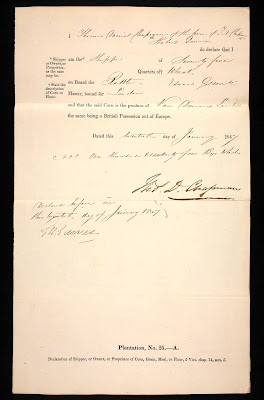 I Thomas Daniel Chapman of the firm of
do declare that I
* Skipper or Owner, or Proprietor, as the case may be.
am the * Shipper of Seventy five
Quarters of † Wheat
† State the description of Corn or Flour.
on Board the Edward Goldsmith
Master, bound for London
and that the said Corn is the produce of Van Diemens Land
the same being a British Possession out of Europe.
Dated this day of January 1847
One Hundred & Seventy five Bags Wheat
Thos. D. Chapman
Declared before me
this eighteenth day of January 1847
Plantation, No. 25.—A.
Declaration of Shipper, or Owner, or Proprietor of Corn, Grain, Meal, or Flour, 5 Vict. chap. 14, sect. 5.